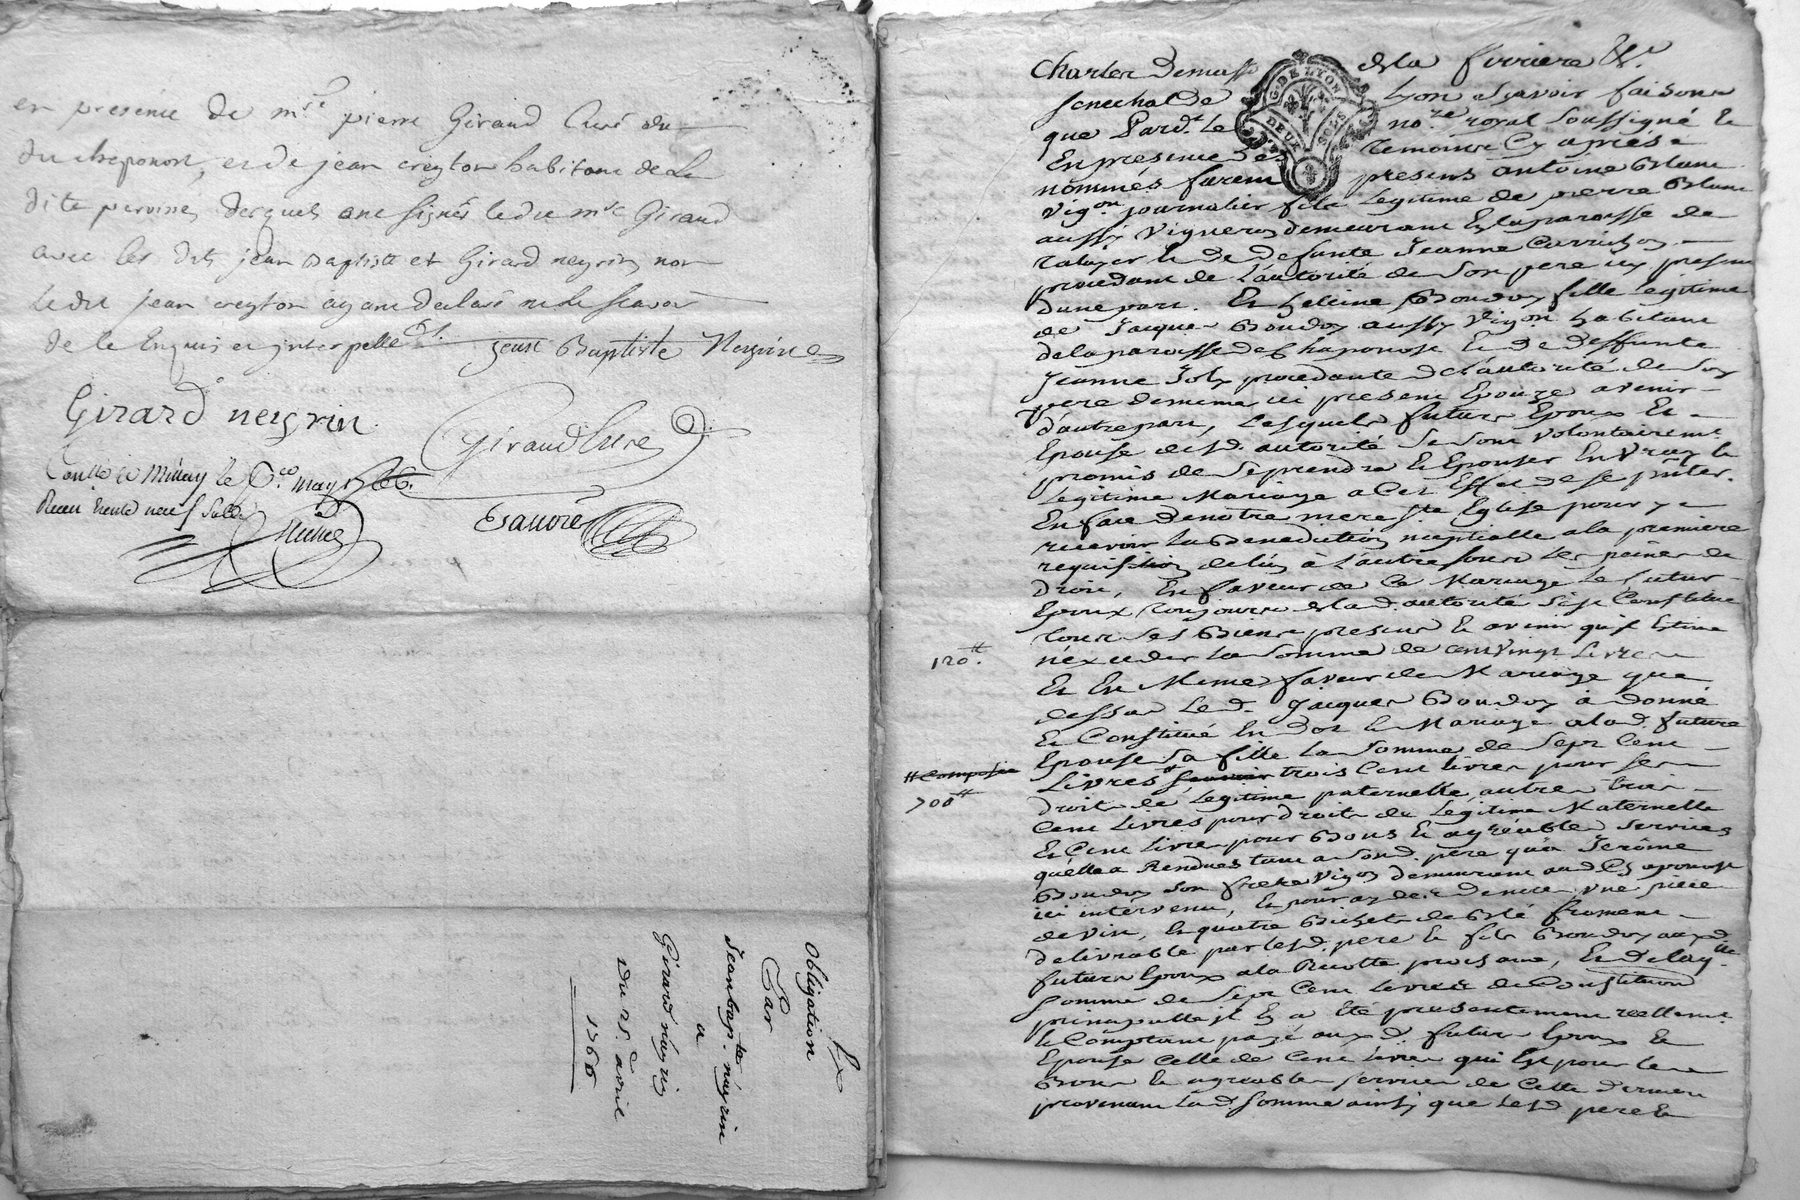 en presence de m.re pierre Giraud Curé du
du chaponost, et de jean creyton habitant de La
dite parroisse, desquels ont signés ledit m.re Giraud
avec les dits jean Baptiste et Girard neyrin non
Ledit jean creyton ayant declaré ne le scavoir
de ce Enquis et jnterpellé &c. jean Baptiste Neyrin
Girard neyrin
Giraud Curé
le may 1766.
Recu trente neuf sols
Obligation
Par
Jean bapt.te néyrin
a
Girard néyrin
du 25.e avril
1766
G. DE LYON
DEUX SOLS
Charles demasso de la ferriere &c.
senechal de Lyon scavoir faisons
que Pard.t le no.re royal soussigné Et
En presence des temoins Cy après
nommés furent presens antoine Blanc
vig.on journalier fils Legitime de pierre Blanc
aussy vigneron demeurant En la paroisse de
et de defunte Jeanne
procedant de L'autorité de son pere icy present
d'une part. Et heleine Boudoy fille Legitime
de Jacques Boudoy aussy vig.on habitant
de la paroisse de Chaponost Et de deffunte
Jeanne Joly procedante de l'autorité de son
pere de meme ici present Epouze avenir
d'autre part, Lesquels futurs Epoux Et
Epouse de lad. autorité se sont volontairem.t
promis de se prendre et Epouser En vray et
Legitime Mariage a Cet Effet de se p̃nter
En face de notre mere s.te Eglise pour y
recevoir La Benediction nuptialle a la premiere
requisition de l'un à L'autre sous les peines de
droit, En faveur de Ce Mariage Le futur
Epoux toujours de lad. autorité s'est Constitué
tous ses Biens presens Et avenir qu'il Estime
120.# n'exceder La somme de cent vingt Livres
Et En Meme faveur de Mariage que
dessus Led. Jacques Boudoy à donné
Et Constitué En dot et Mariage a lad. future
Epouse sa fille La somme de sept Cent
# Composée Livres # trois Cent livres pour ses
700# droits de Legitime paternelle, autres trois
Cent Livres pour droits de Legitime Maternelle
Et Cent Livres pour Bons Et agréables services
qu'elle a Rendues tant a sond. pere qu'a Jerôme
Boudoy son frere vigon demeurant aud. Chaponost
ici intervenu, Et pour de une piece
de vin, Et quatre Bichets de Blé froment
delivrable par lesd. pere Et fils Boudoy auxd.
futurs Epoux a la Recolte prochaine, Et de lad.
somme de sept Cent Livres de Constitution
principalle il En a été presentement reellem.t
Et Comptant payé auxd. futurs Epoux Et
Epouse Celle de Cent Livres qui Est pour les
Bons Et agreables services de Cette derniere
provenant Lad. somme ainsy que Lesd. pere Et